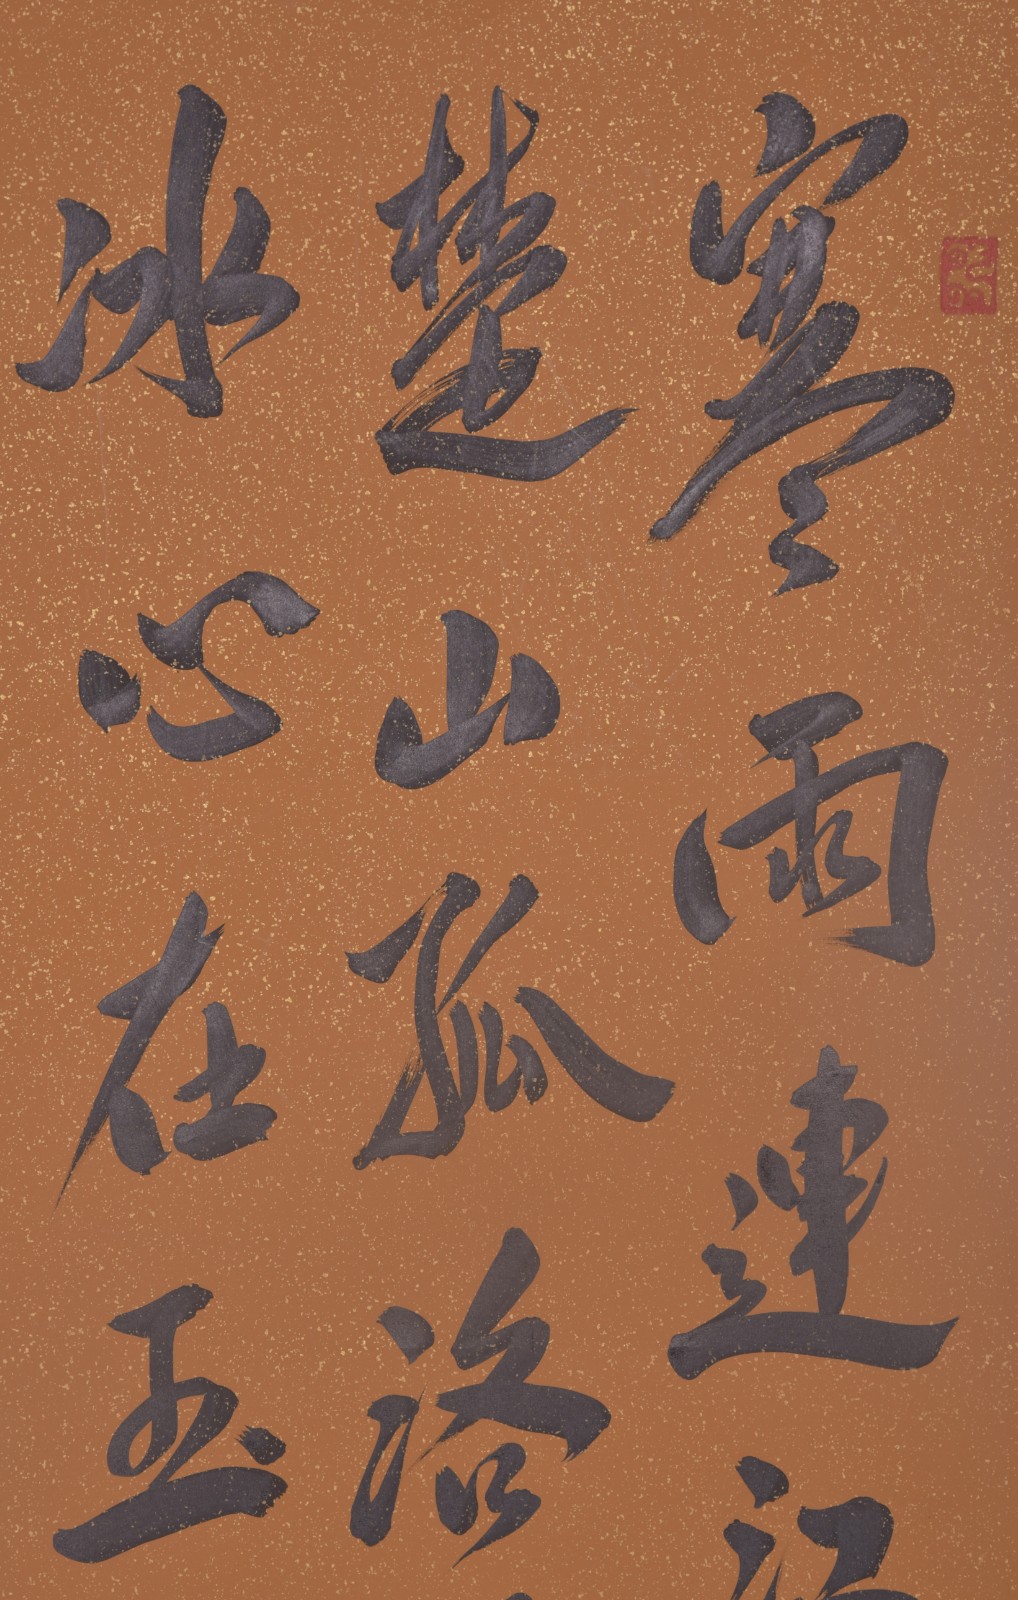 寒雨連江
楚山孤洛
冰心在玉